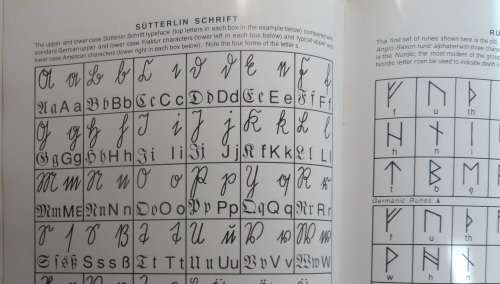 SÜTTERLIN SCHRIFT
The upper and lower case Sütterlin Schrift typeface (top letters in each box in the example below) compared with
standard German upper and lower case Fraktur characters (lower left in each box below) and typical upper and
lower case American characters (lower right in each box below). Note the four forms of the letter s.
A a B b C c D d E e F f
Aa A a Bb Bb Cc C c Dd Dd Ee E e Ff F f
G g H h I i J j K k L l
Gg Gg Hh H h Ii I i Jj J j Kk K k Ll L l
M m N n O o P p Q q R r
Mm Mm Nn N n Oo O o Pp Pp Qq Q q Rr R r
S ſ s ß T t U u V v W w
S ſ s ß S s s ß Tt T t Uu U u Vv V v Ww W w
The first set of runes shown here is the
Anglo-Saxon runic alphabet with three
is the Nordic, the most modern of the
Nordic letter can be used to indicate
ᚠ ᚢ ᚦ
f u th
ᚺ ᚾ ᛁ
h n i
ᛏ ᛒ
t b e
Germanic Runes ▲
ᚠ ᚢ ᚦ
f u th
ᚹ ᚻ ᚾ
w h n